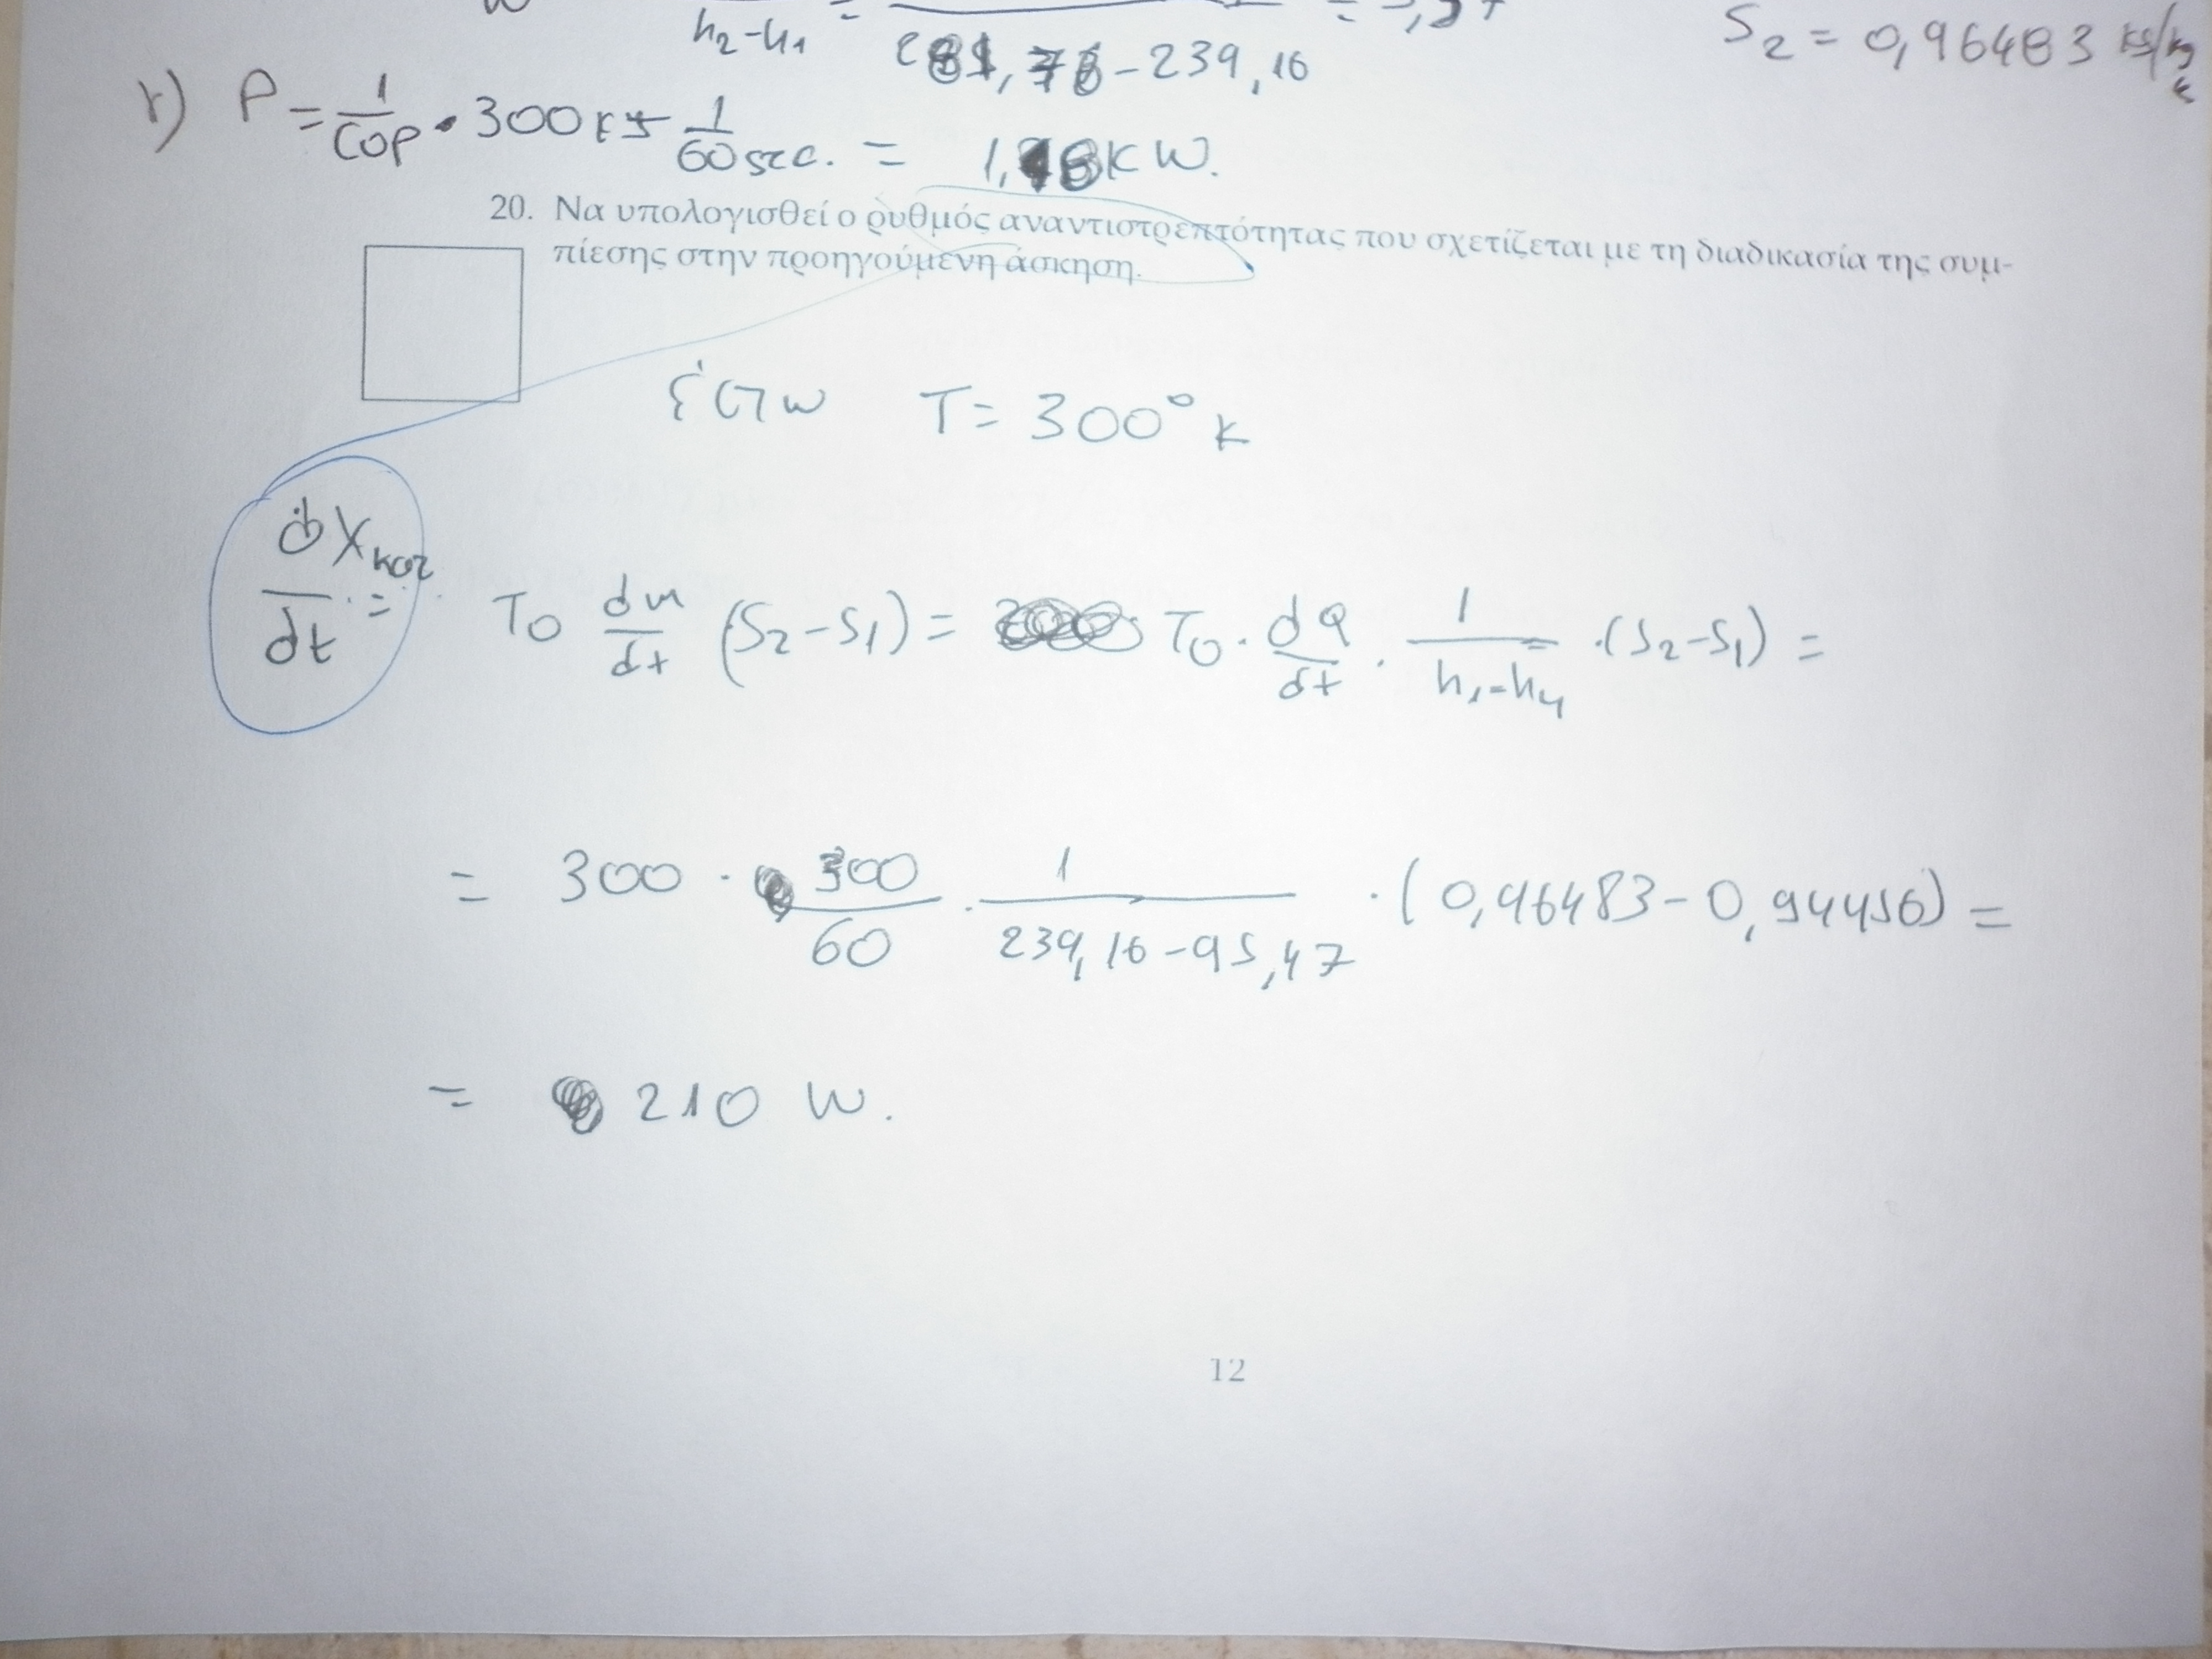 h₂-h₁ = - 239,16 =
S₂ = 0,96483 kJ/kg K
γ) P = 1/COP · 300 kJ 1/60 sec. = kW.
20. Να υπολογισθεί ο ρυθμός αναντιστρεπτότητας που σχετίζεται με τη διαδικασία της συμ-
πίεσης στην προηγούμενη άσκηση.
έστω T = 300° K
δXκατ/dt = T₀ dm/dt (S₂-S₁) = T₀ · dQ/dt · 1/(h₁-h₄) · (S₂-S₁) =
= 300 · 300/60 · 1/(239,16-95,47) · (0,96483 - 0,94456) =
= 210 W.
12